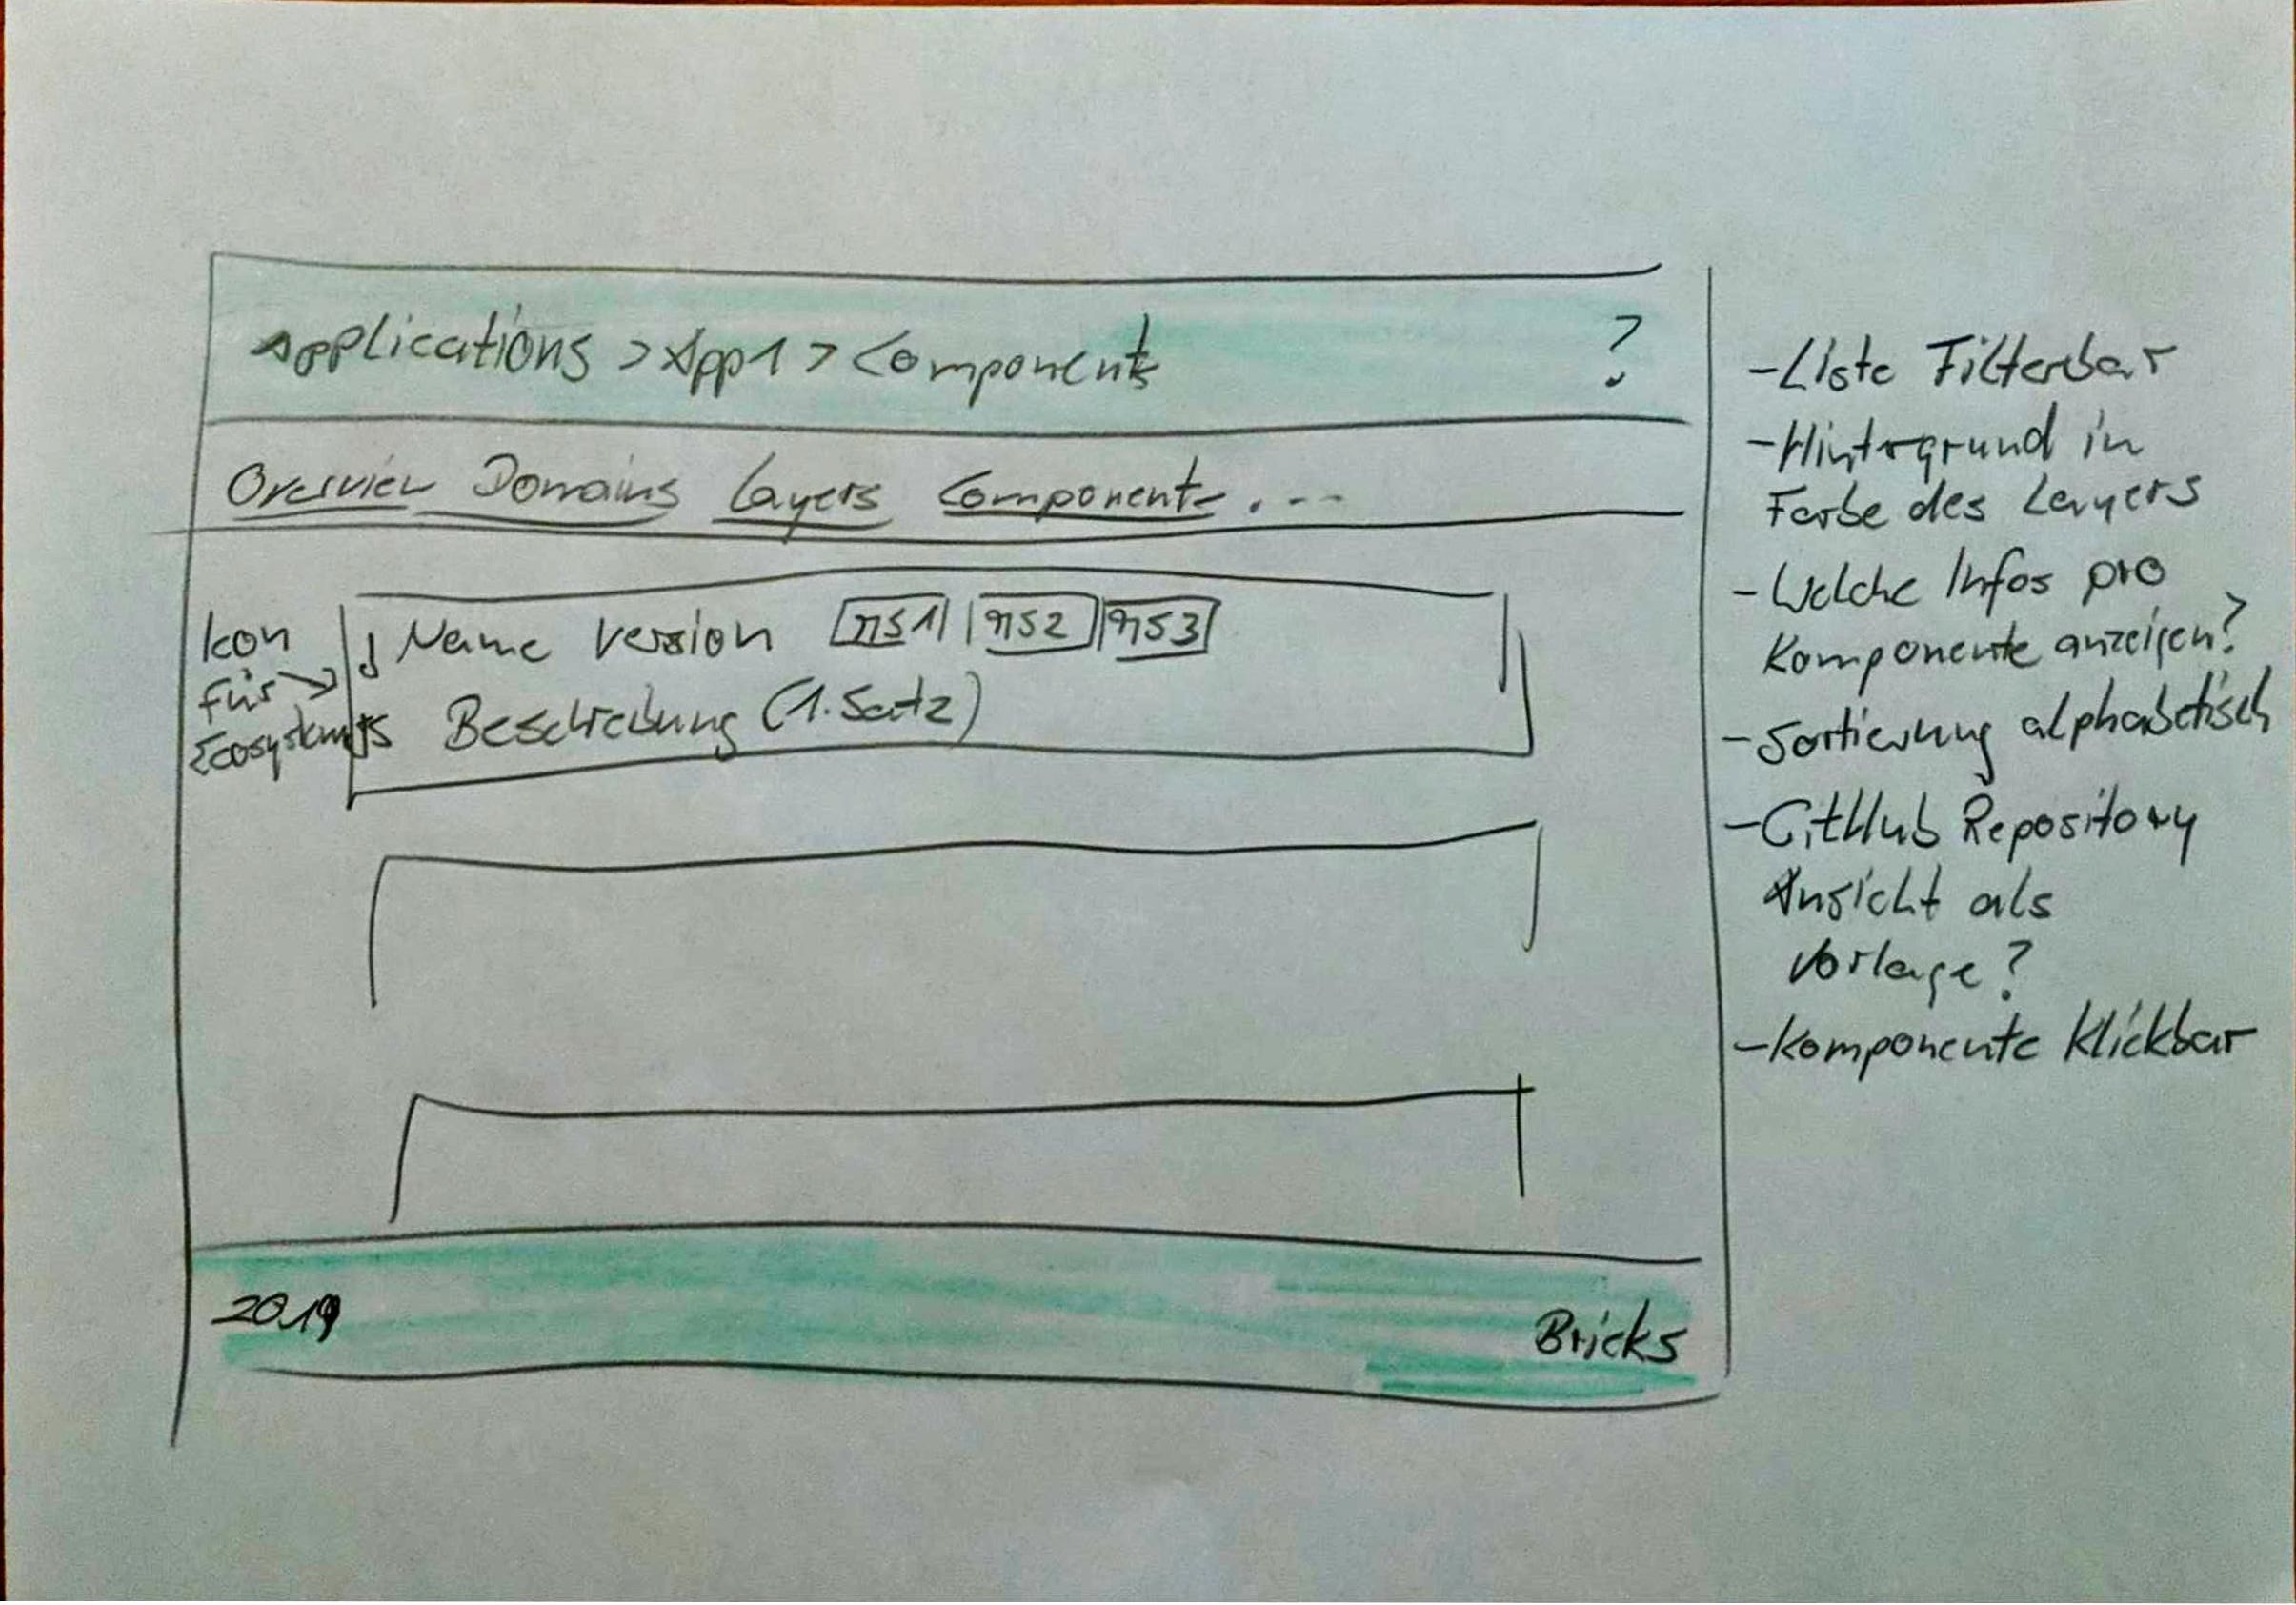 Applications > App1 > Components ?
Overview Domains Layers Components . . .
Icon
für →
Ecosystems
Name Version ns1 ns2 ns3
Beschreibung (1. Satz)
2019 Bricks
- Liste Filterbar
- Hintergrund in
Farbe des Layers
- Welche Infos pro
Komponente anzeigen?
- Sortierung alphabetisch
- GitHub Repository
Ansicht als
Vorlage?
- Komponente Klickbar